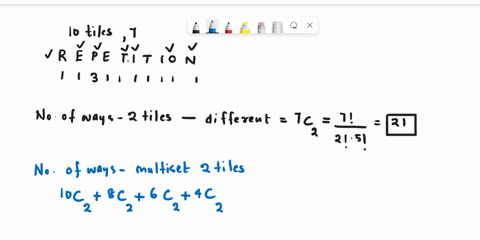 10 tiles, 7
✓ R E P E T I T I O N
1 1 3 1 1 1 1 1 1 1
No. of ways - 2 tiles — different = 7C2 = 7! / 2! · 5! = 21
No. of ways - multiset 2 tiles
10C2 + 8C2 + 6C2 + 4C2